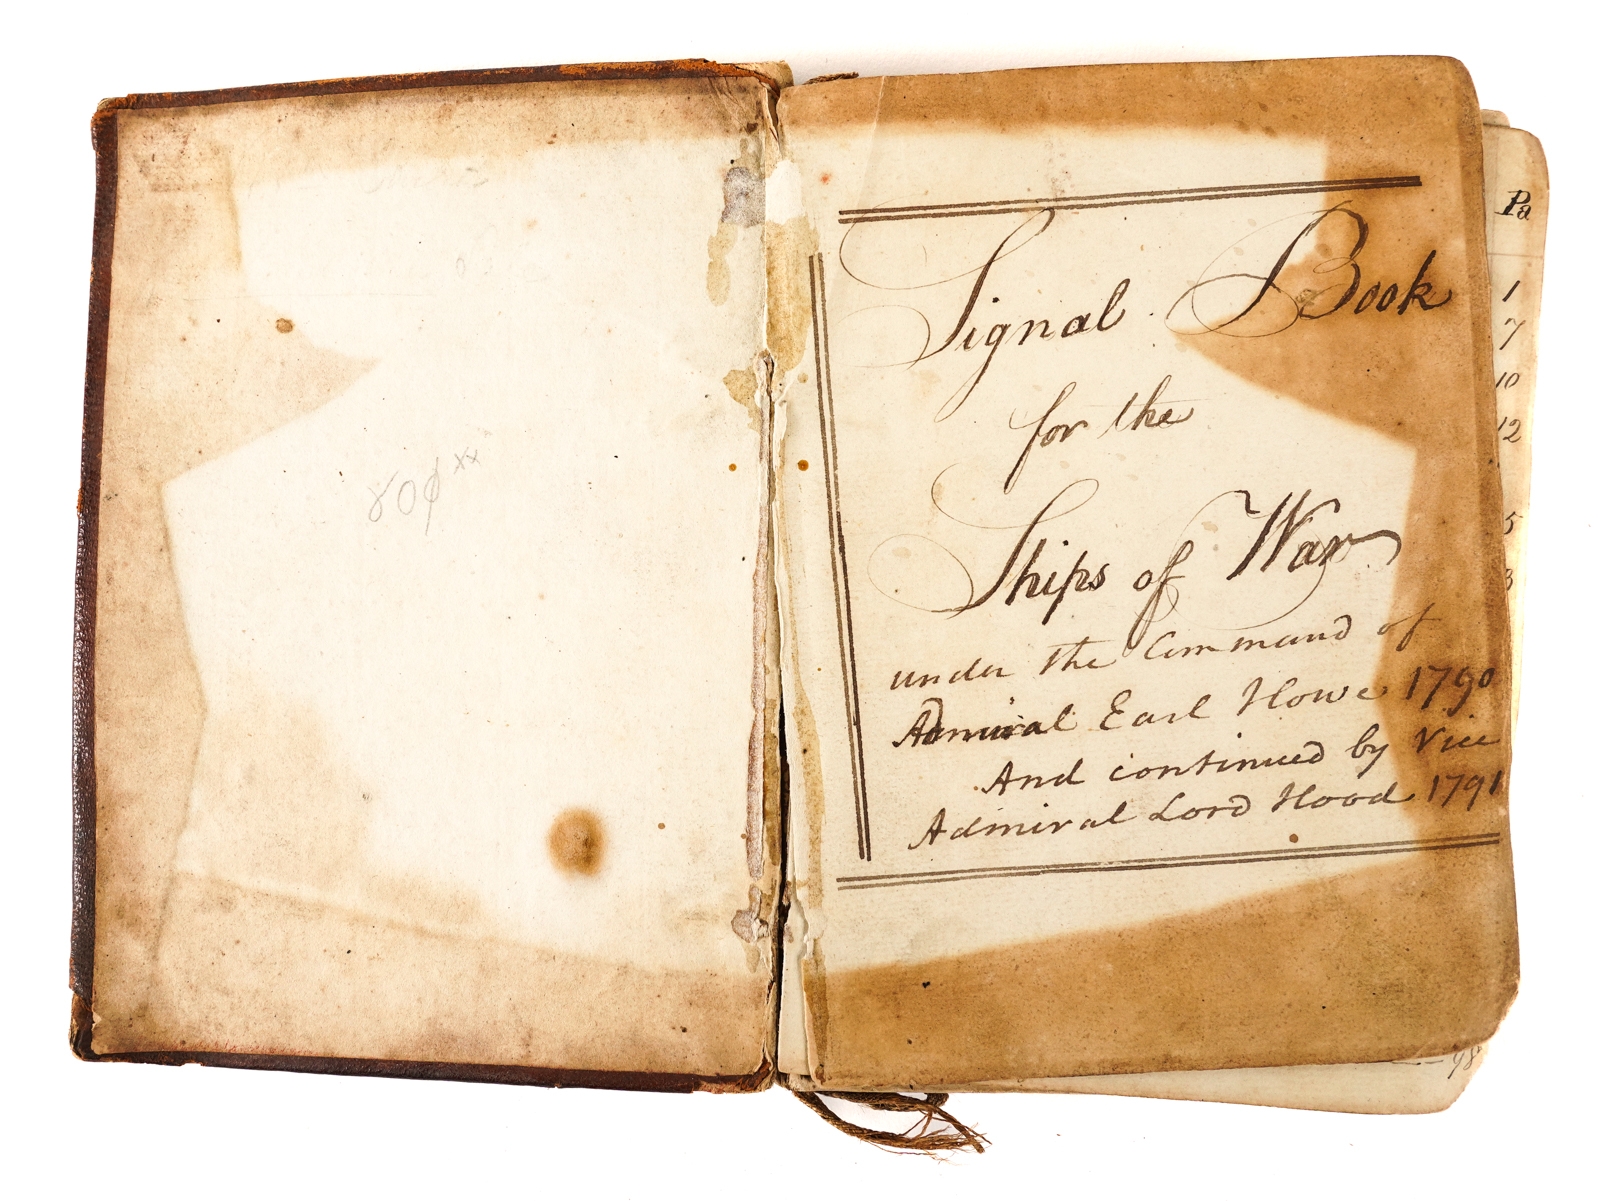 Signal Book
for the
Ships of War
under the Command of
Admiral Earl Howe 1790
And continued by Vice
Admiral Lord Hood 1791
Pa
1
7
10
12
5
3
98